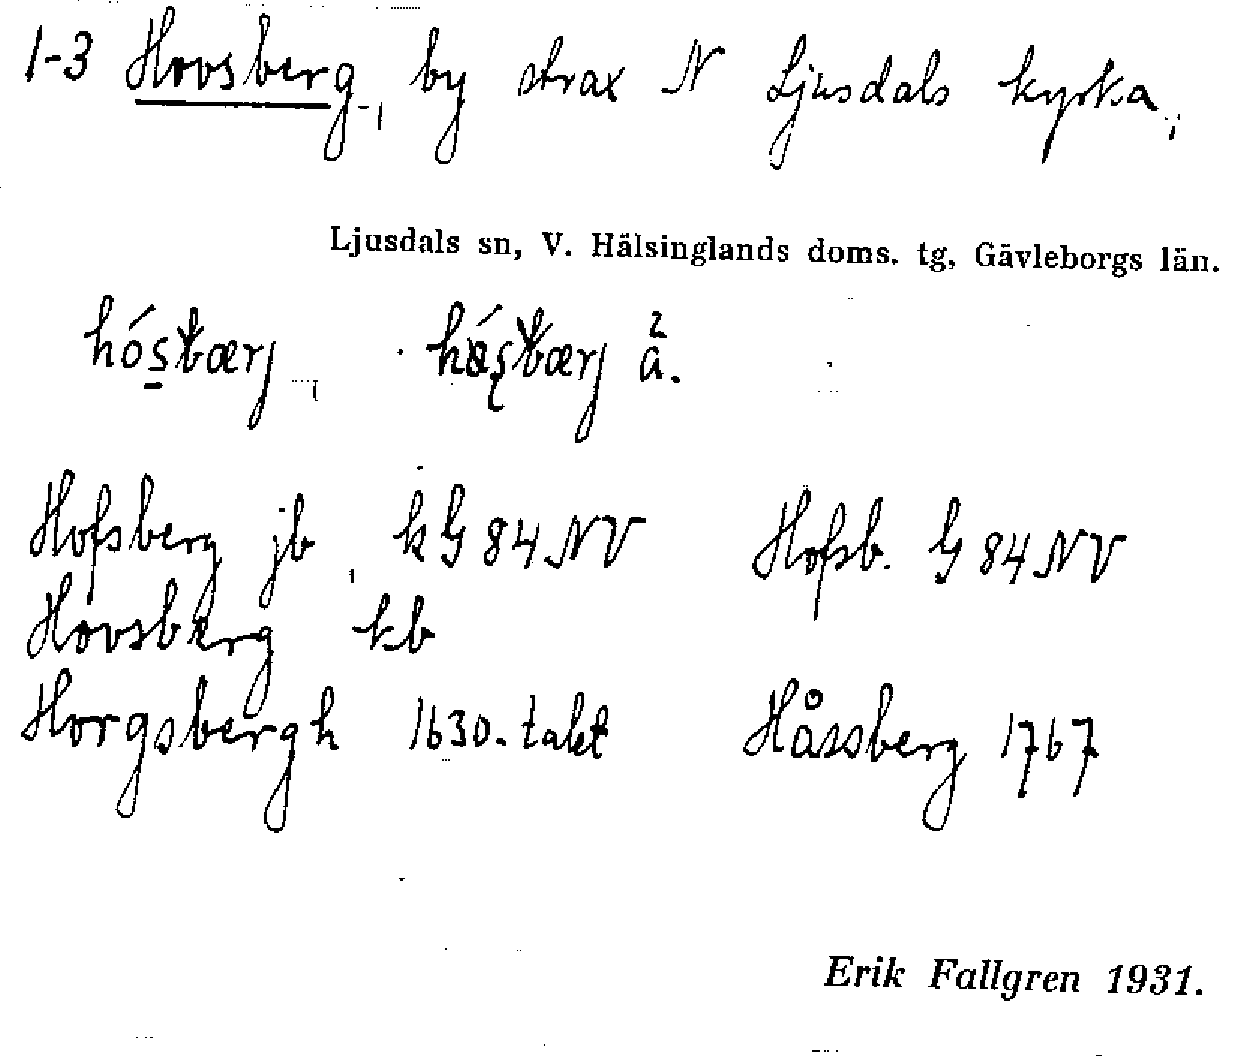 1-3 Hovsberg, by strax N Ljusdals kyrka,
Ljusdals sn, V. Hälsinglands doms. tg, Gävleborgs län.
Hofsberg jb, k G 84 NV Hofsb. G 84 NV
Hovsberg kb
Horgsbergh 1630-talet Håssberg 1767
Erik Fallgren 1931.